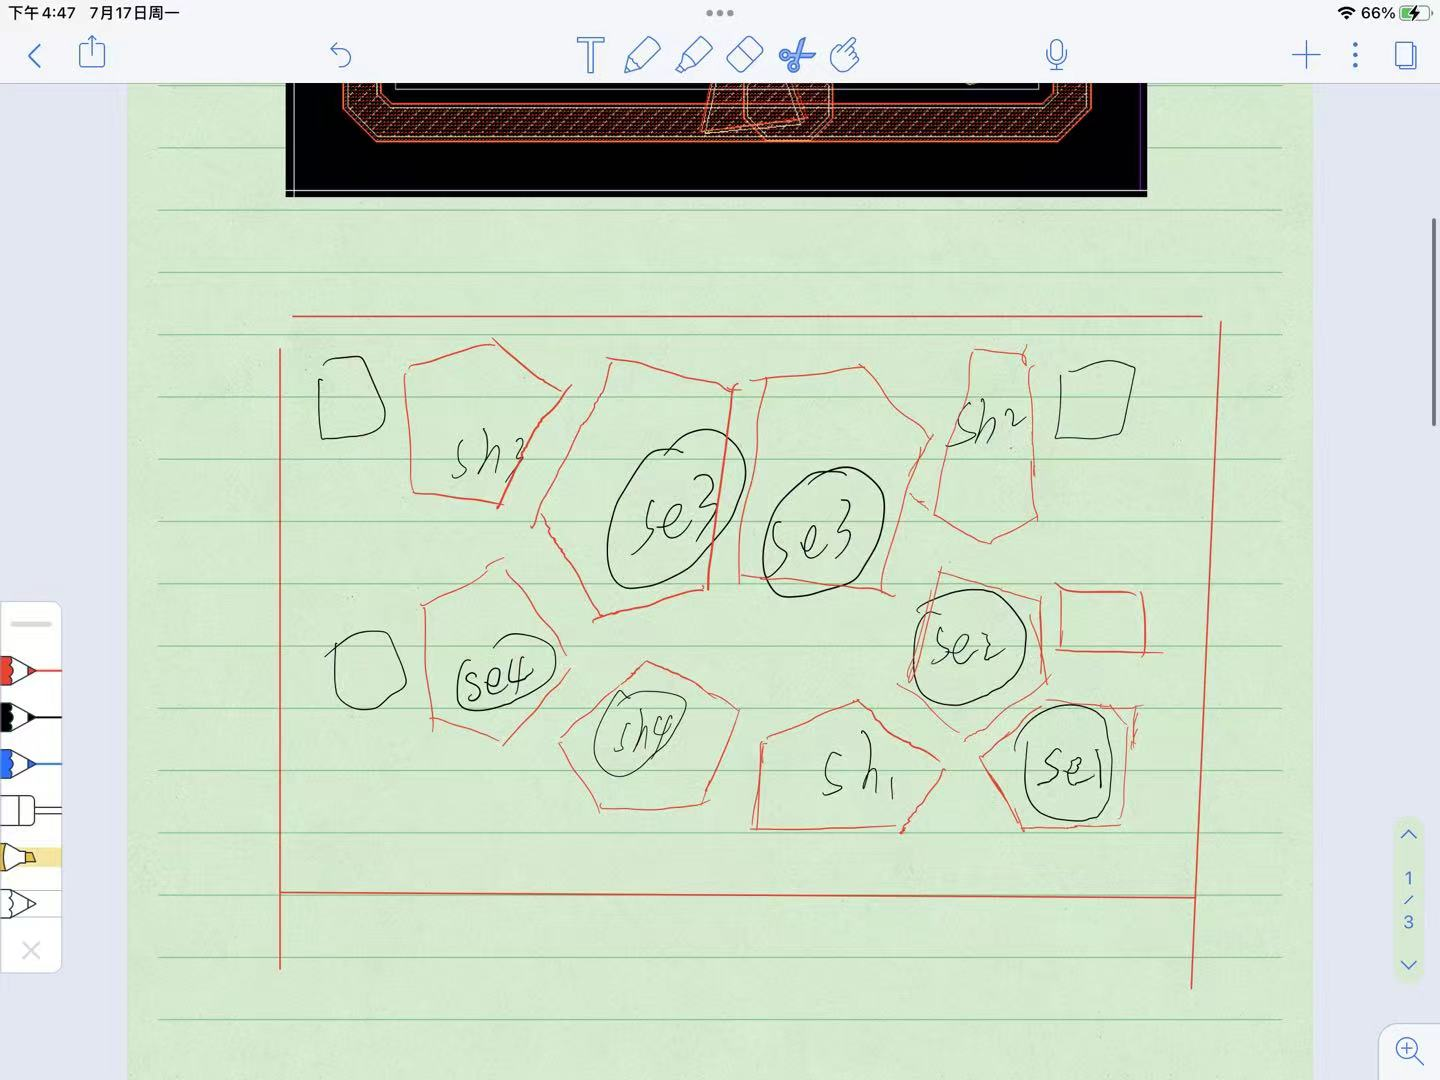 下午4:47 7月17日周一
66%
T
sh3
se3
se3
sh2
se4
sh4
sh1
se2
se1
1
/
3